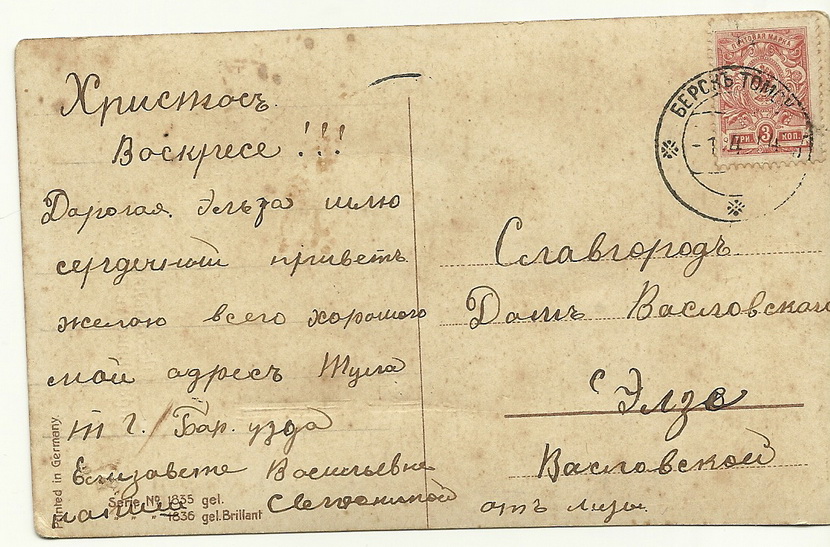 Христосъ
Воскресе!!!
Дарогая Эльза шлю
сердечный приветъ
желаю всего хорошаго
мой адресъ Тула
т г. Бар. узда
Елизавете Васильевне
ПОЧТОВАЯ МАРКА
ТРИ 3 КОП.
БЕРСКЪ ТОМСК
Славгородъ
Домъ Васловскаго
Элзе
Васловской
отъ Лизы.
Printed in Germany.
Serie No 1835 gel.
" " 1836 gel. Brillant